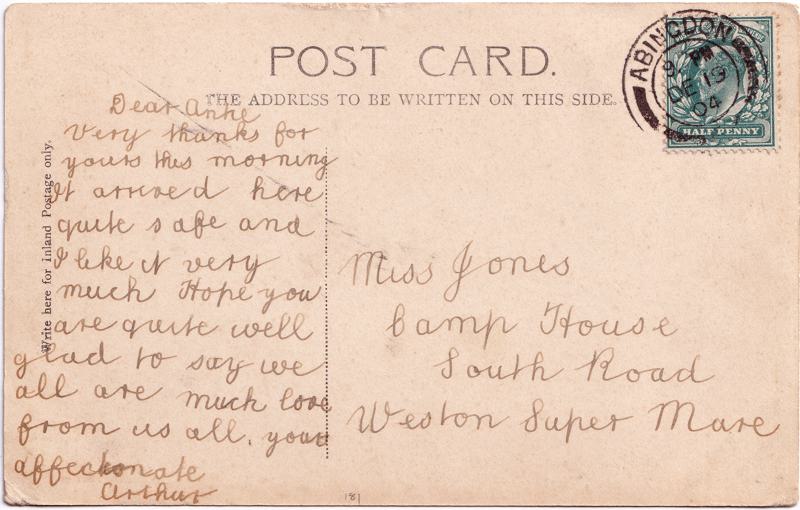 POST CARD.
THE ADDRESS TO BE WRITTEN ON THIS SIDE.
Write here for Inland Postage only.
ABINGDON
PM
DE 19
04
HALF PENNY
Dear
Very thanks for
yours this morning
It arrived here
quite safe and
I like it very
much Hope you
are quite well
glad to say we
all are much love
from us all. your
affectonate
Arthur
Miss Jones
Camp House
South Road
Weston Super Mare
181